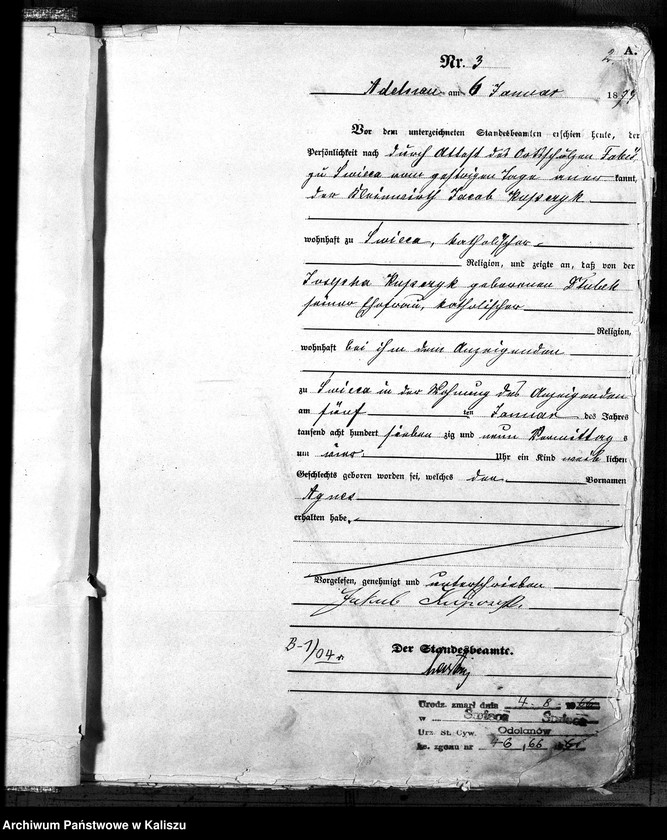 2 A.
Nr. 3
Adelnau am 6 Januar 1879
Vor dem unterzeichneten Standesbeamten erschien heute, der
Persönlichkeit nach durch Attest des Ortsschulzen
zu Swieca vom gestrigen Tage aner kannt,
der Kleinwirth Jacob
wohnhaft zu Swieca, katholischer
Religion, und zeigte an, daß von der
Josepha geborenen
seiner Ehefrau, katholischer
Religion,
wohnhaft bei ihm dem Anzeigenden
zu Swieca in der Wohnung des Anzeigenden
am fünf ten Januar des Jahres
tausend acht hundert sieben zig und neun Vormittag s
um vier Uhr ein Kind weib lichen
Geschlechts geboren worden sei, welches den Vornamen
Agnes
erhalten habe.
Vorgelesen, genehmigt und unterschrieben
Jakub
B-1/04
Der Standesbeamte.
Urodz. zmarł dnia 4-8-
w
Urz. St. Cyw. Odolanów
kc. zgonu nr 46, 66
Archiwum Państwowe w Kaliszu